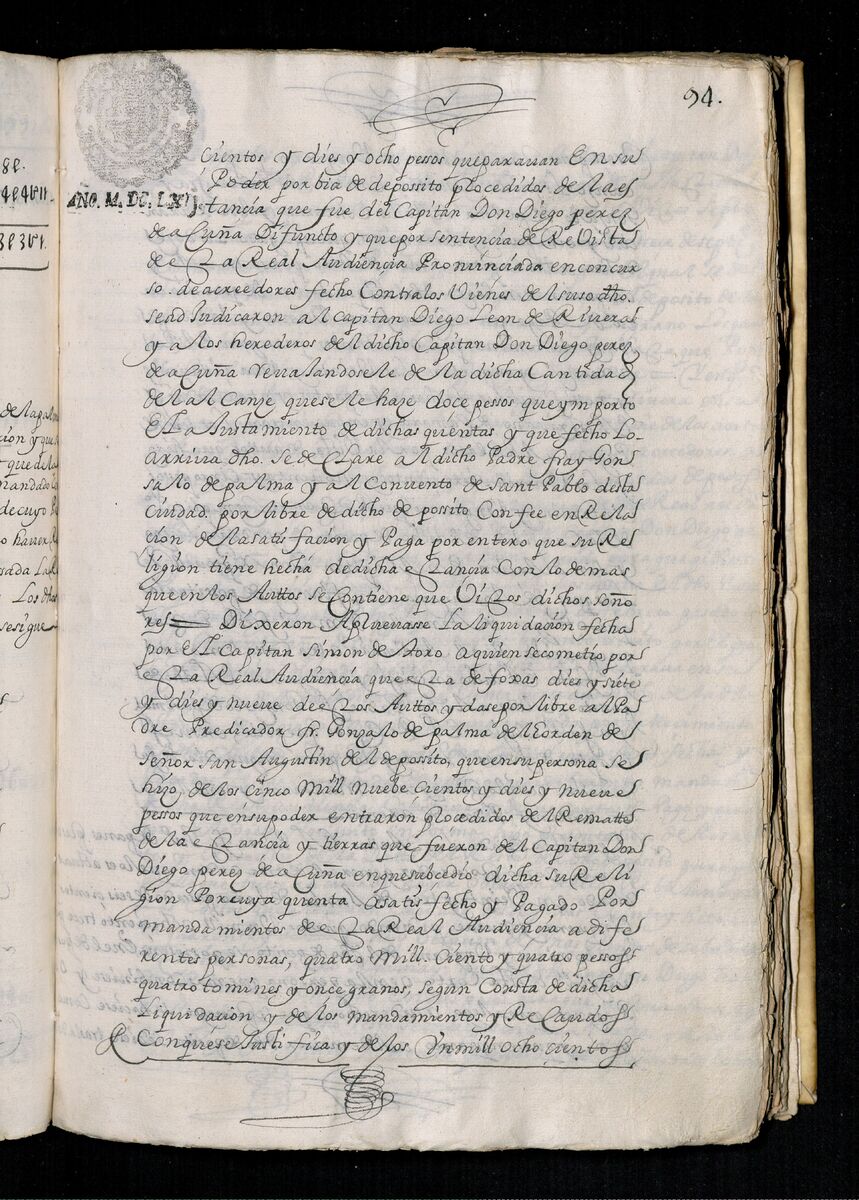 94.
cientos y dies y ocho pessos queparavan En su
Poder por bia de depossito procedidos de la es
AÑO. M. DC. LX
tancia que fue del Capitan Don Diego perez
de a Cuña Difuncto y que por sentencia de ReVista
de esta Real Audiencia Pronunciada en concur
so. de acreedores fecho Contra los Vienes del suso dho.
se ad Iudicaron al Capitan Diego Leon de Rivera
y a los herederos del dicho Capitan Don Diego perez
de a Cuña Revalandosele de la dicha Cantidad
del al Canze que se le haze doce pessos que ymporto
El a Iustamiento de dichas quentas y que fecho Lo
arriva dho. se de Clare al dicho Padre fray Gon
salo de palma y al Convento de Sant Pablo desta
Ciudad. por libre de dicho de possito Con fee en Rela
cion de la satis facion y Paga por entero que su Re
ligion tiene hecha de dicha estancia Con lo demas
que en los Auttos se Contiene que Vistos dichos seño
res= Dixeron Aprueuasse La liquidacion fecha
por El Capitan simon de toro a quien se cometio por
esta Real Audiencia que esta de foxas dies y siete
y dies y nueve de estos Auttos y dase por libre al Pa
dre Predicador fr. Gonzalo de palma del orden de
señor san Augustin del depossito, que en su persona se
hizo, de los cinco Mill Nuebe cientos y dies y nueve
pessos que en su poder entraron procedidos del Rematte
de la estancia y tierras que fueron del Capitan Don
Diego perez de a Cuña en que subcedio dicha su Reli
gion Por cuya quenta a satis fecho y Pagado Por
mandamientos de esta Real Audiencia a dife
rentes personas, quatro Mill. Ciento y quatro pessos
quatro tomines y once granos, segun Consta de dicha
Liquidacion y de los mandamientos y Recaudos
Con que se Iusti fica y de los Un mill ocho cientos